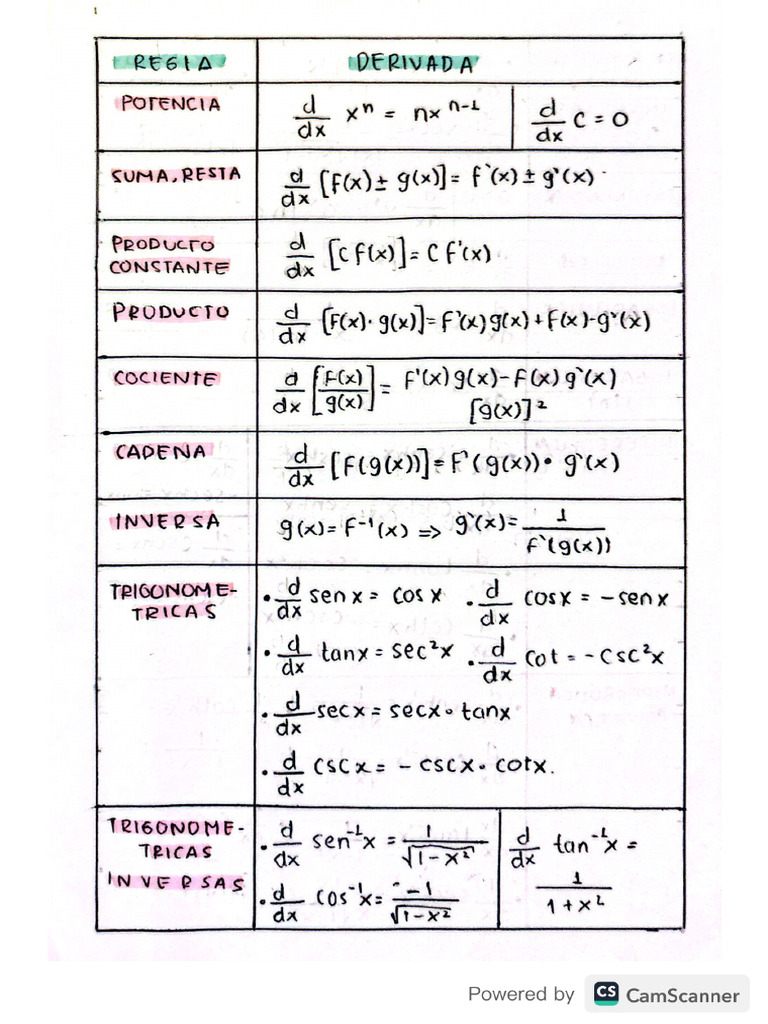 REGLA
DERIVADA
POTENCIA
d/dx xⁿ = nxⁿ⁻¹
d/dx C = 0
SUMA, RESTA
d/dx [f(x) ± g(x)] = f'(x) ± g'(x)
PRODUCTO
CONSTANTE
d/dx [C f(x)] = C f'(x)
PRODUCTO
d/dx [f(x)·g(x)] = f'(x) g(x) + f(x)·g'(x)
COCIENTE
d/dx [f(x)/g(x)] = f'(x) g(x) - f(x) g'(x) / [g(x)]²
CADENA
d/dx [f(g(x))] = f'(g(x)) • g'(x)
INVERSA
g(x) = f⁻¹(x) => g'(x) = 1/f'(g(x))
TRIGONOME-
TRICAS
• d/dx sen x = cos x • d/dx cosx = - sen x
• d/dx tanx = sec²x • d/dx cot = - csc²x
• d/dx secx = secx • tanx
• d/dx csc x = - cscx • cotx.
TRIGONOME-
TRICAS
INVERSAS
• d/dx sen⁻¹x = 1/√1-x²
• d/dx cos⁻¹x = -1/√1-x²
d/dx tan⁻¹x =
1/1+x²
Powered by CS CamScanner